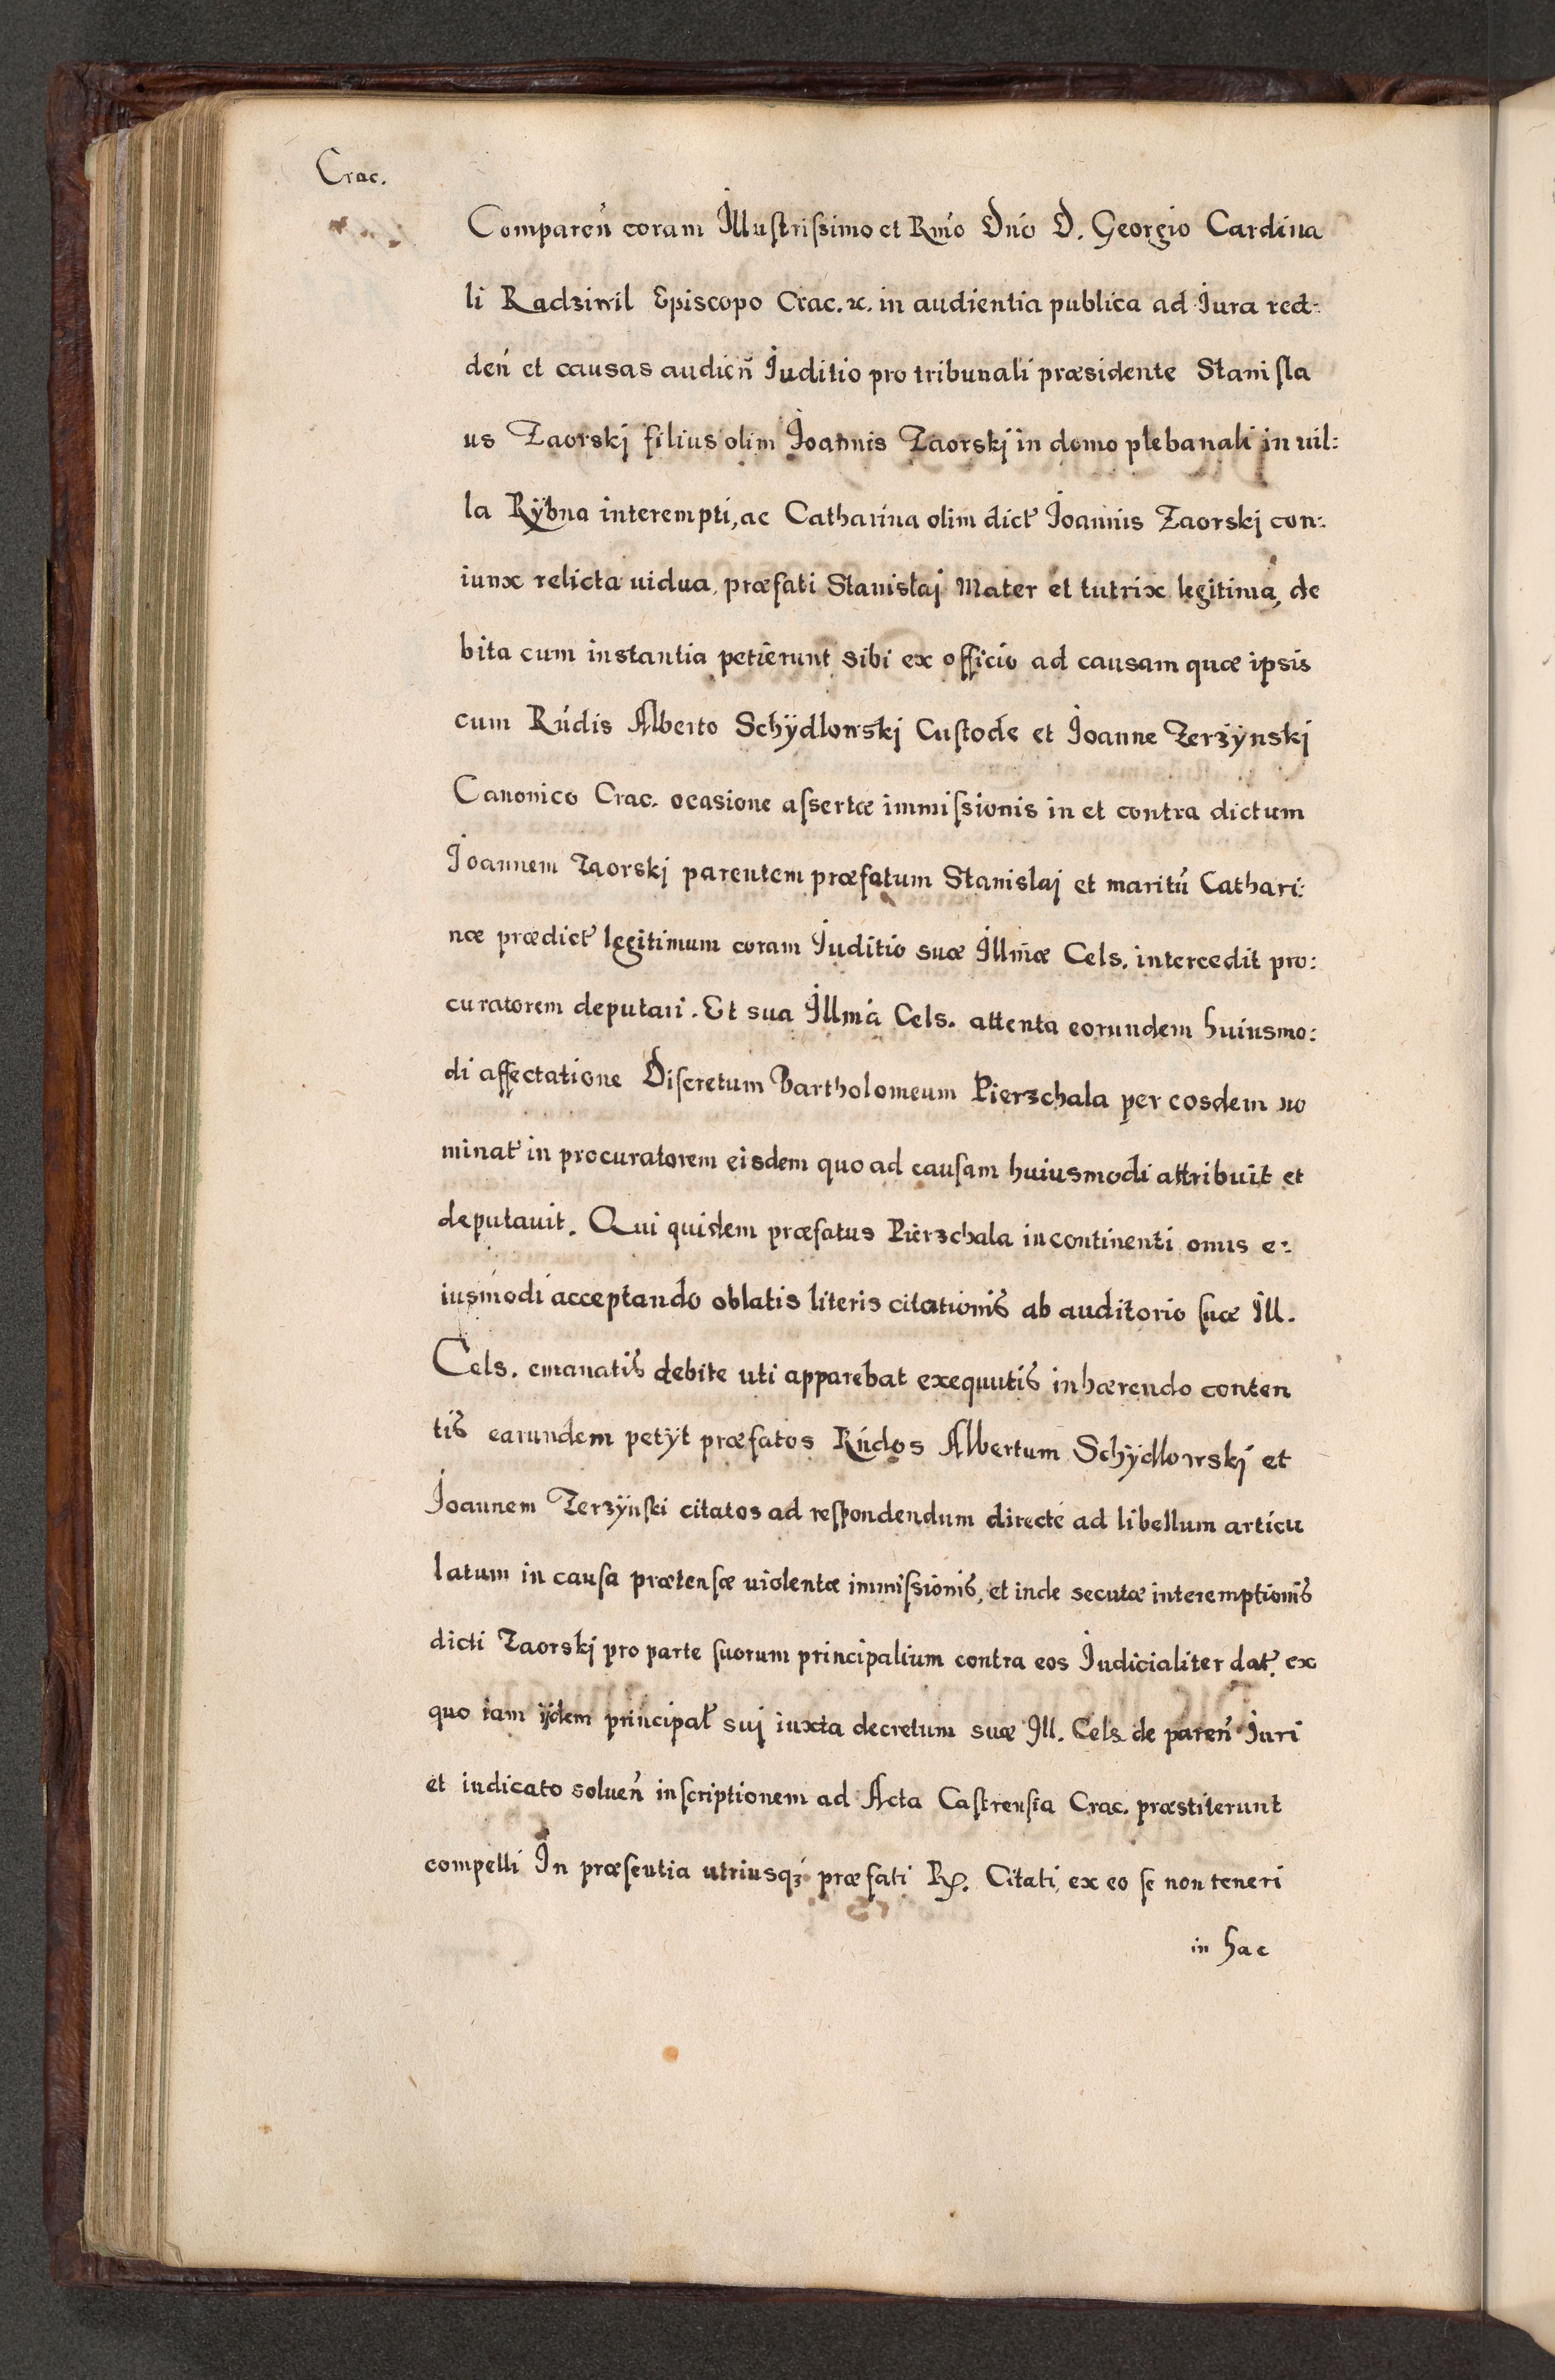 Crac.
Comparen̄ coram Illustrissimo et Rmo Dno D. Georgio Cardina
li Radziwil Episcopo Crac. &c. in audientia publica ad Iura red:
den̄ et causas audien̄ Iuditio pro tribunali præsidente Stanisla
us Zaorskj filius olim Ioannis Zaorskj in domo plebanali in uil:
la Rÿbna interempti, ac Catharina olim dict Ioannis Zaorskj con:
iunx relicta uidua, præfati Stanislaj Mater et tutrix legitima, de
bita cum instantia petierunt sibi ex officio ad causam quæ ipsis
cum Rndis Alberto Schÿdlowskj Custode et Ioanne Zerzÿnskj
Canonico Crac. ocasione assertæ immissionis in et contra dictum
Ioannem Zaorskj parentem præfatum Stanislaj et maritū Cathari:
næ prædict legitimum coram Iuditio suæ Illmæ Cels. intercedit pro:
curatorem deputari. Et sua Illma Cels. attenta eorundem huiusmo:
di affectatione Discretum Bartholomeum Pierzchala per eosdem no
minat in procuratorem eisdem quo ad causam huiusmodi attribuit et
deputauit. Qui quidem præfatus Pierzchala incontinenti onus e:
iusmodi acceptando oblatis literis citationis ab auditorio suæ Ill.
Cels. emanatis debite uti apparebat exequutis inhærendo conten
tis earundem petÿt præfatos Rndos Albertum Schÿdlowskj et
Ioannem Zerzÿnski citatos ad respondendum directe ad libellum articu
latum in causa prætensæ uiolentæ immissionis, et inde secutæ interemptionis
dicti Zaorskj pro parte suorum principalium contra eos Iudicialiter dat. ex
quo iam ijdem principal suj iuxta decretum suæ Ill. Cels. de paren̄ Iuri
et iudicato soluen̄ inscriptionem ad Acta Castrensia Crac. præstiterunt
compelli In præsentia utriusqꝫ præfati R. Citati, ex eo se non teneri
in hac